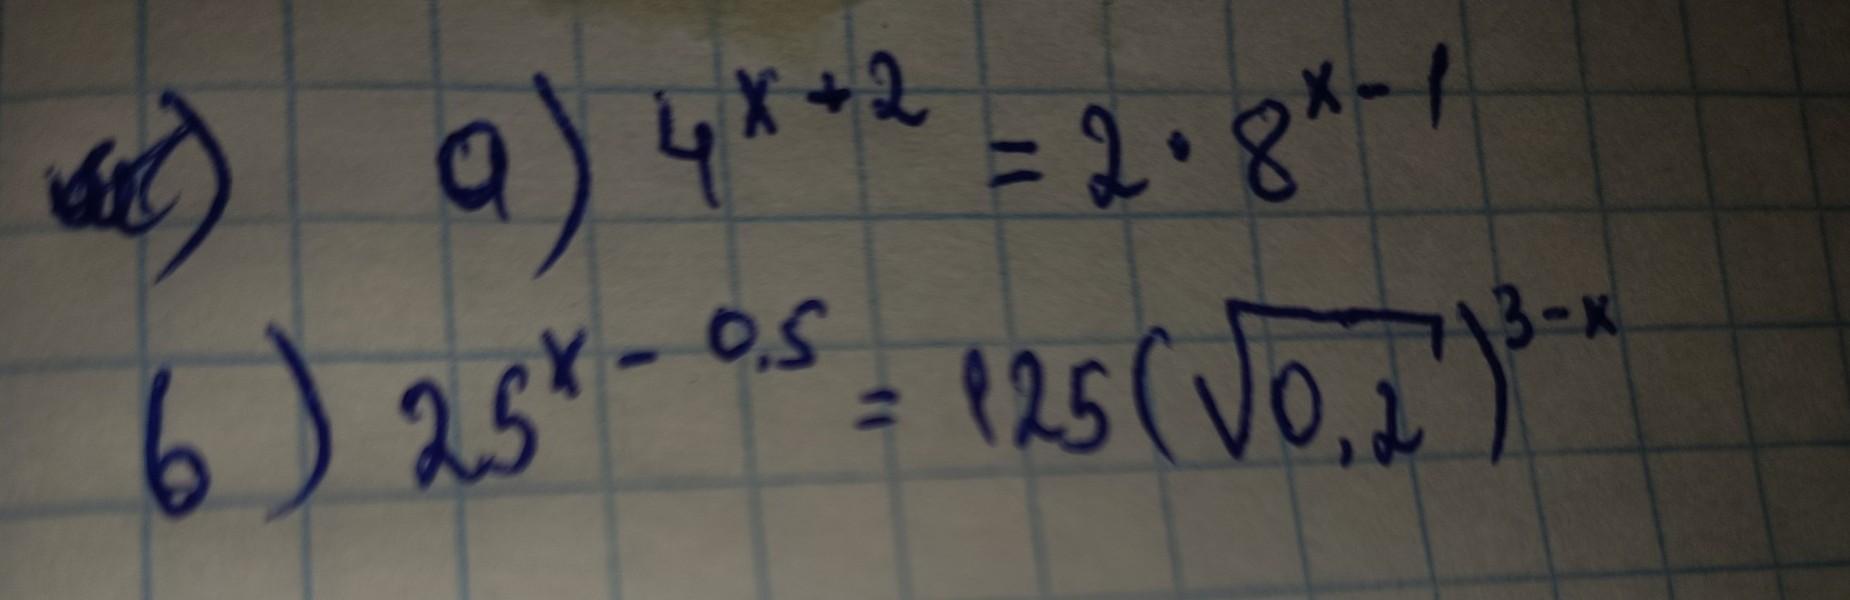 a) 4^{x+2} = 2 · 8^{x-1}
b) 25^{x-0.5} = 125(√0,2)^{3-x}